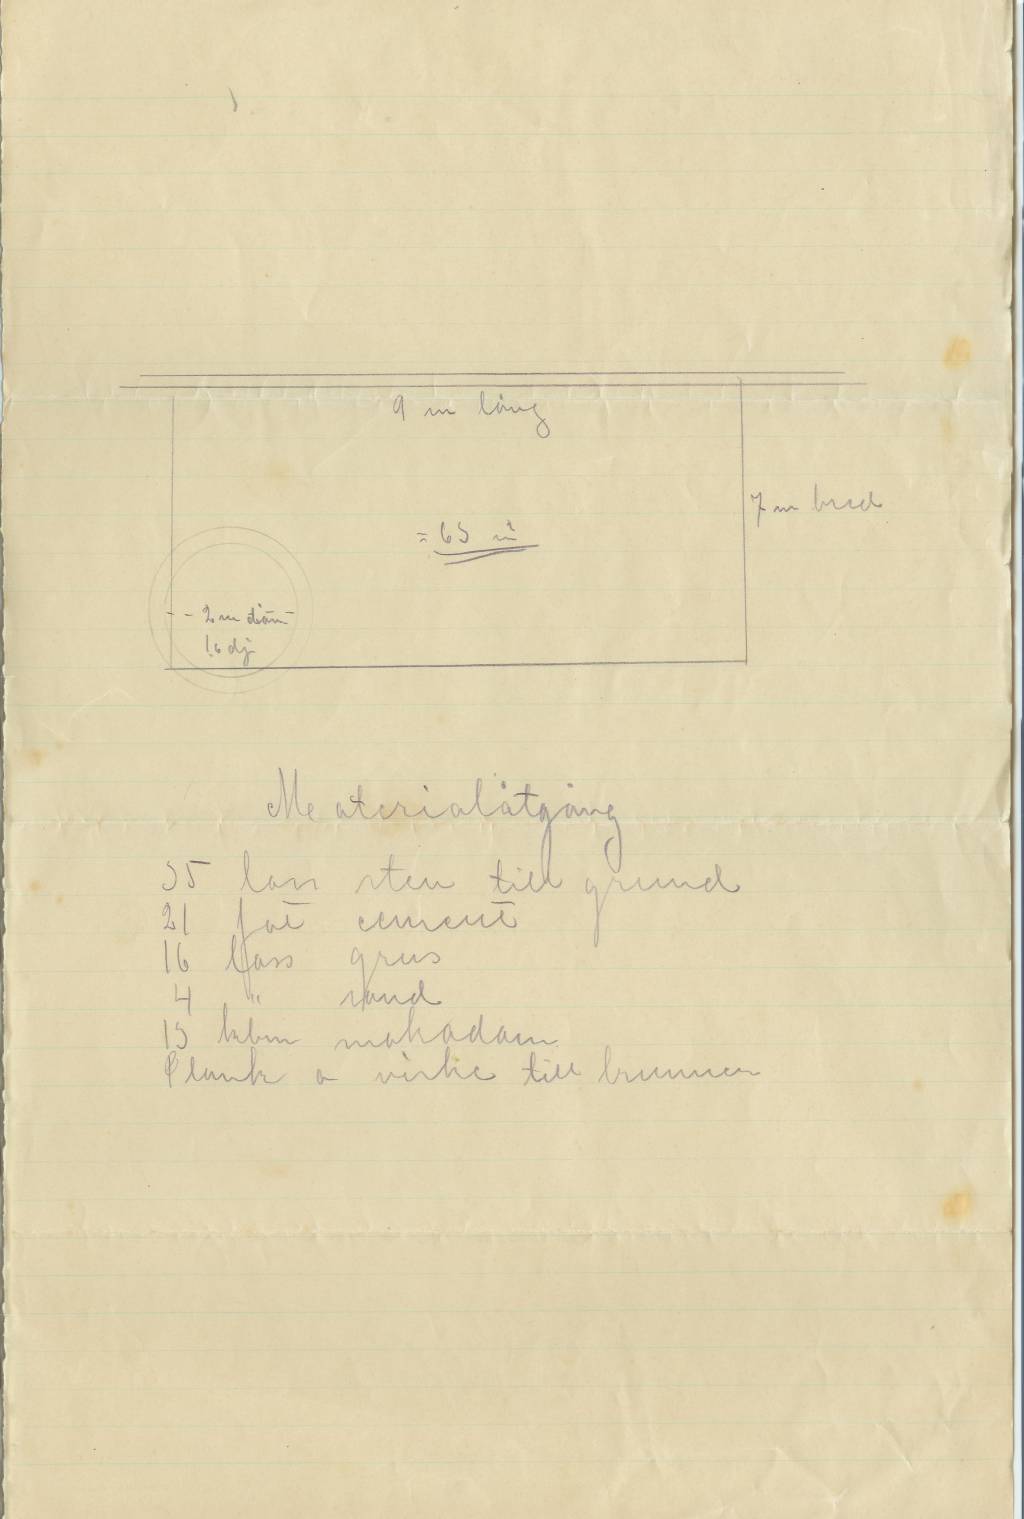 9 m lång
7 m bred
= 63 m²
2 m diam
1.6 dj
Materialåtgång
35 lass sten till grund
21 fat cement
16 lass grus
4 " sand
15 kbm makadam
Plank o virke till brunnen